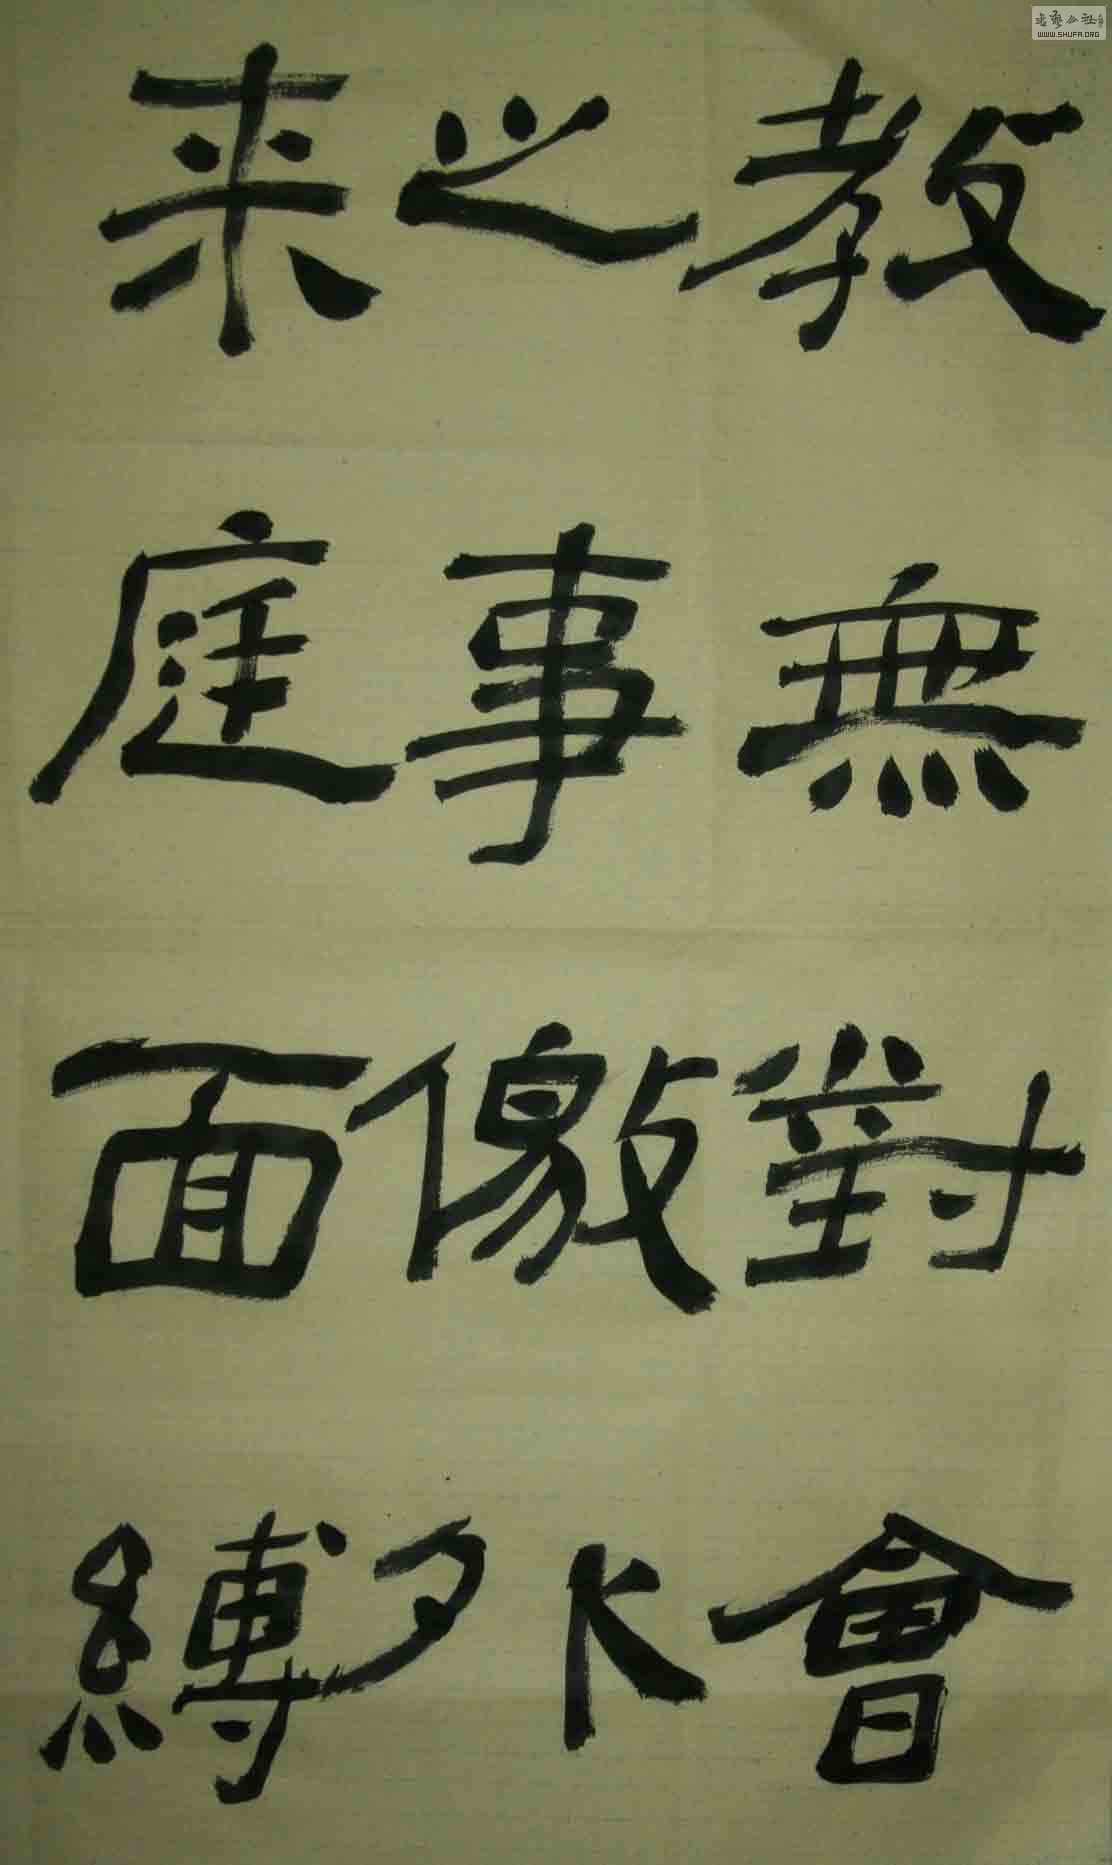 書藝公社
WWW.SHUFA.ORG
教無對會
之事儌外
来庭面縛